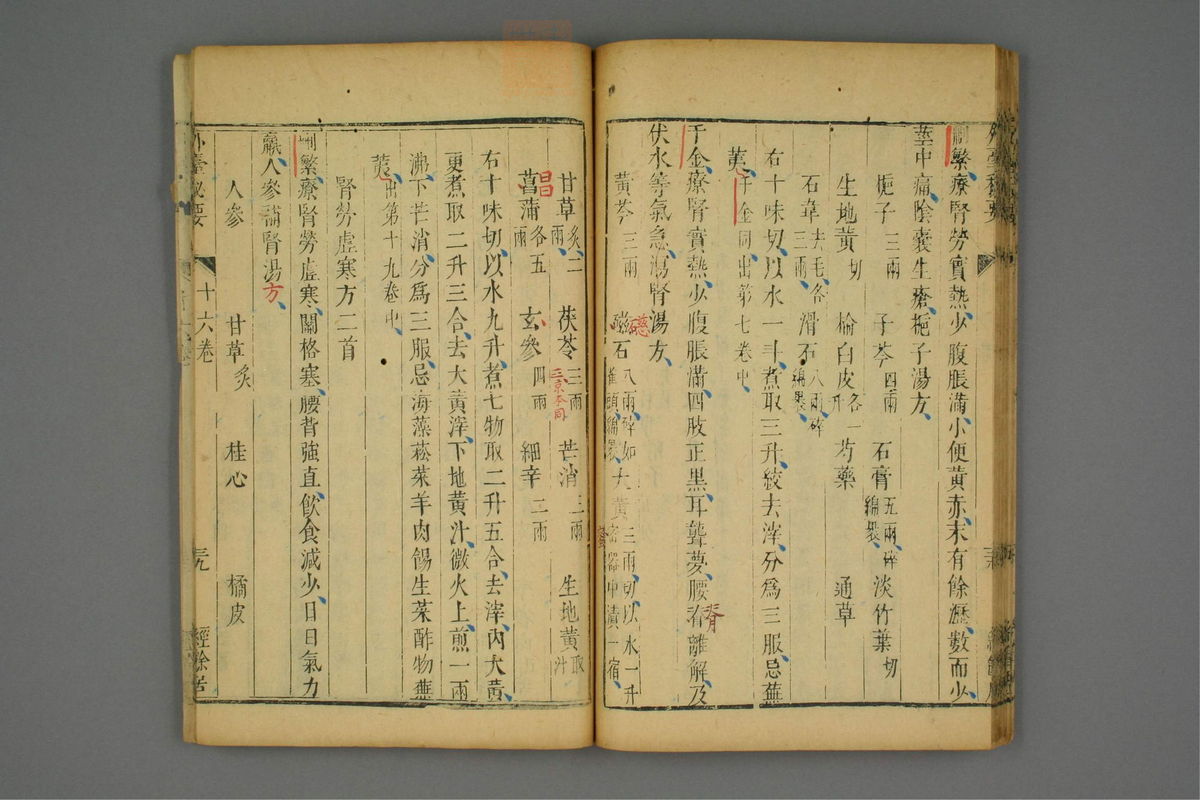 刪繁療腎勞實熱少腹脹滿小便黃赤末有餘瀝數而少
莖中痛陰囊生瘡梔子湯方
梔子三兩 子芩四兩 石膏五兩碎綿裹 淡竹葉切
生地黃切 榆白皮各一升 芍藥 通草
石韋去毛各三兩 滑石八兩碎綿裹
右十味切以水一斗煮取三升絞去滓分爲三服忌蕪
荑千金同出第七卷中
千金療腎實熱少腹脹滿四肢正黑耳聾夢腰脊離解及
伏水等氣急瀉腎湯方
黃芩三兩 磁石八兩碎如雀頭綿裹 大黃三兩切以水一升密器中漬一宿
甘草炙二兩 茯苓三兩 芒消三兩 生地黃取汁
菖蒲各五兩 玄參四兩 細辛二兩
右十味切以水九升煮七物取二升五合去滓內大黃
更煮取二升三合去大黃滓下地黃汁微火上煎一兩
沸下芒消分爲三服忌海藻菘菜羊肉餳生菜酢物蕪
荑出第十九卷中
腎勞虛寒方二首
刪繁療腎勞虛寒關格塞腰背強直飲食減少日日氣力
羸人參補腎湯方
人參 甘草炙 桂心 橘皮
外臺秘要 十六卷 經餘居